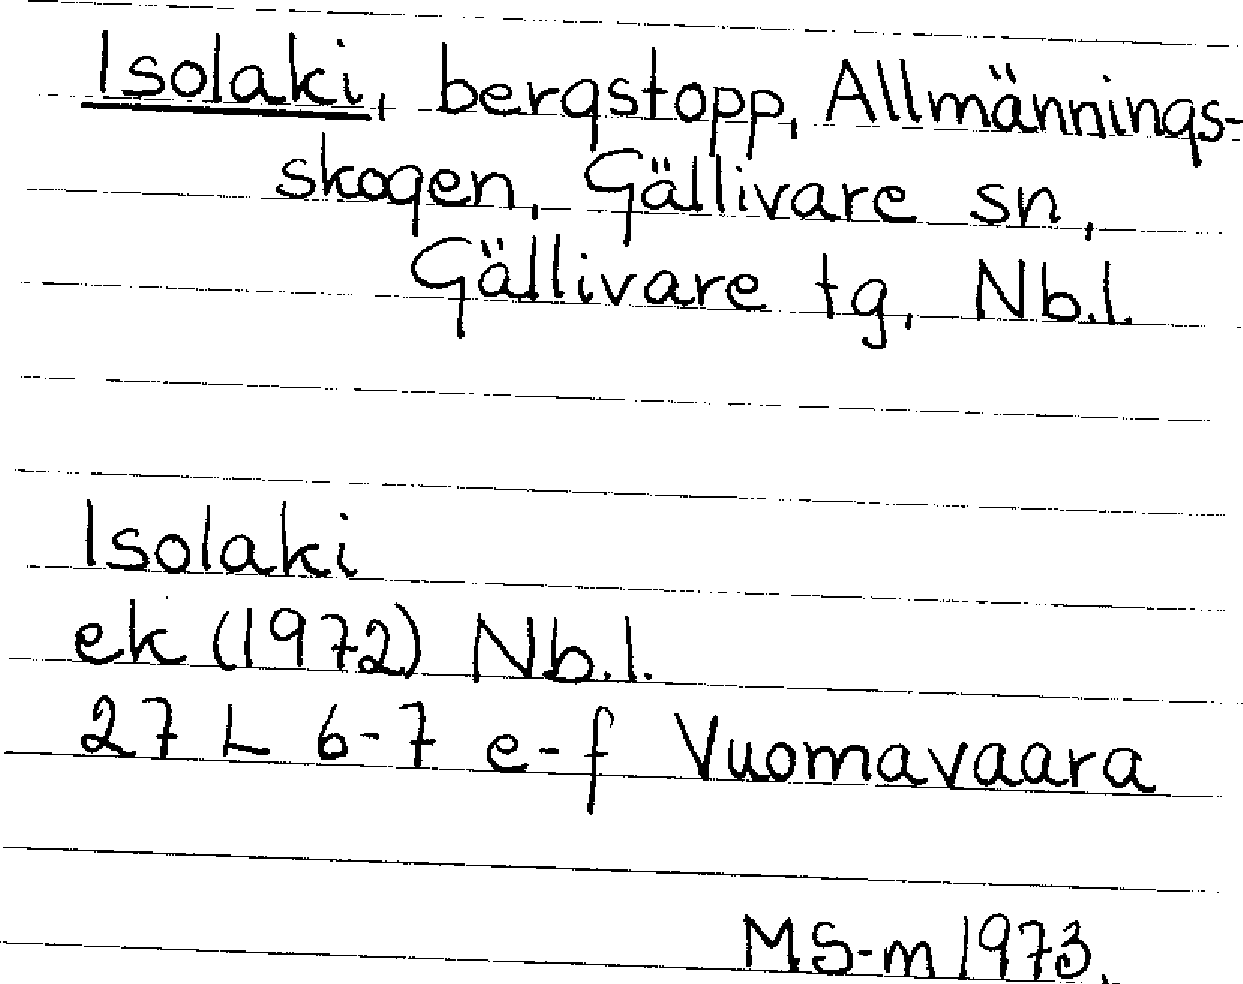 Isolaki, bergstopp, Allmännings-
skogen, Gällivare sn,
Gällivare tg, Nb.l.
Isolaki
ek (1972) Nb.l.
27 L 6-7 e-f Vuomavaara
MS-m 1973.